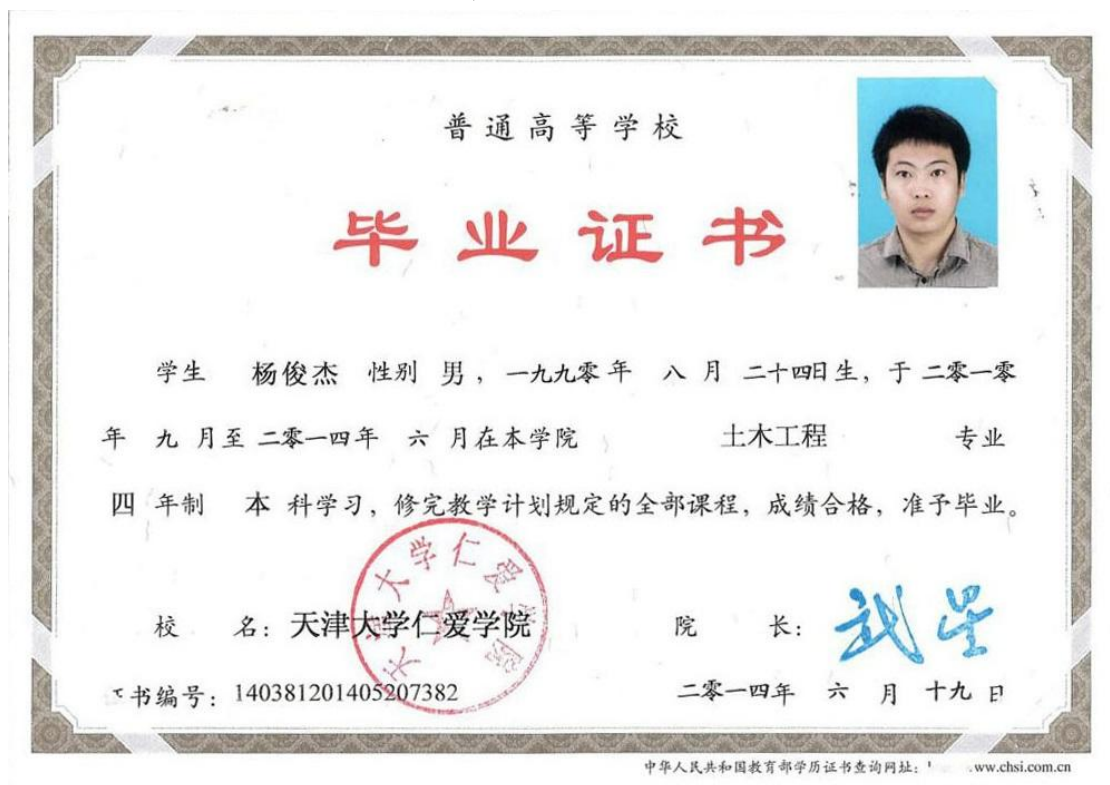 普通高等学校
毕业证书
学生 杨俊杰 性别 男，一九九零年 八 月 二十四日生，于 二零一零
年 九 月至 二零一四年 六 月在本学院 土木工程 专业
四 年制 本 科学习，修完教学计划规定的全部课程，成绩合格，准予毕业。
天津大学仁爱学院
校 名：天津大学仁爱学院 院 长：武星
书编号：140381201405207382 二零一四年 六 月 十九 日
中华人民共和国教育部学历证书查询网址： ww.chsi.com.cn